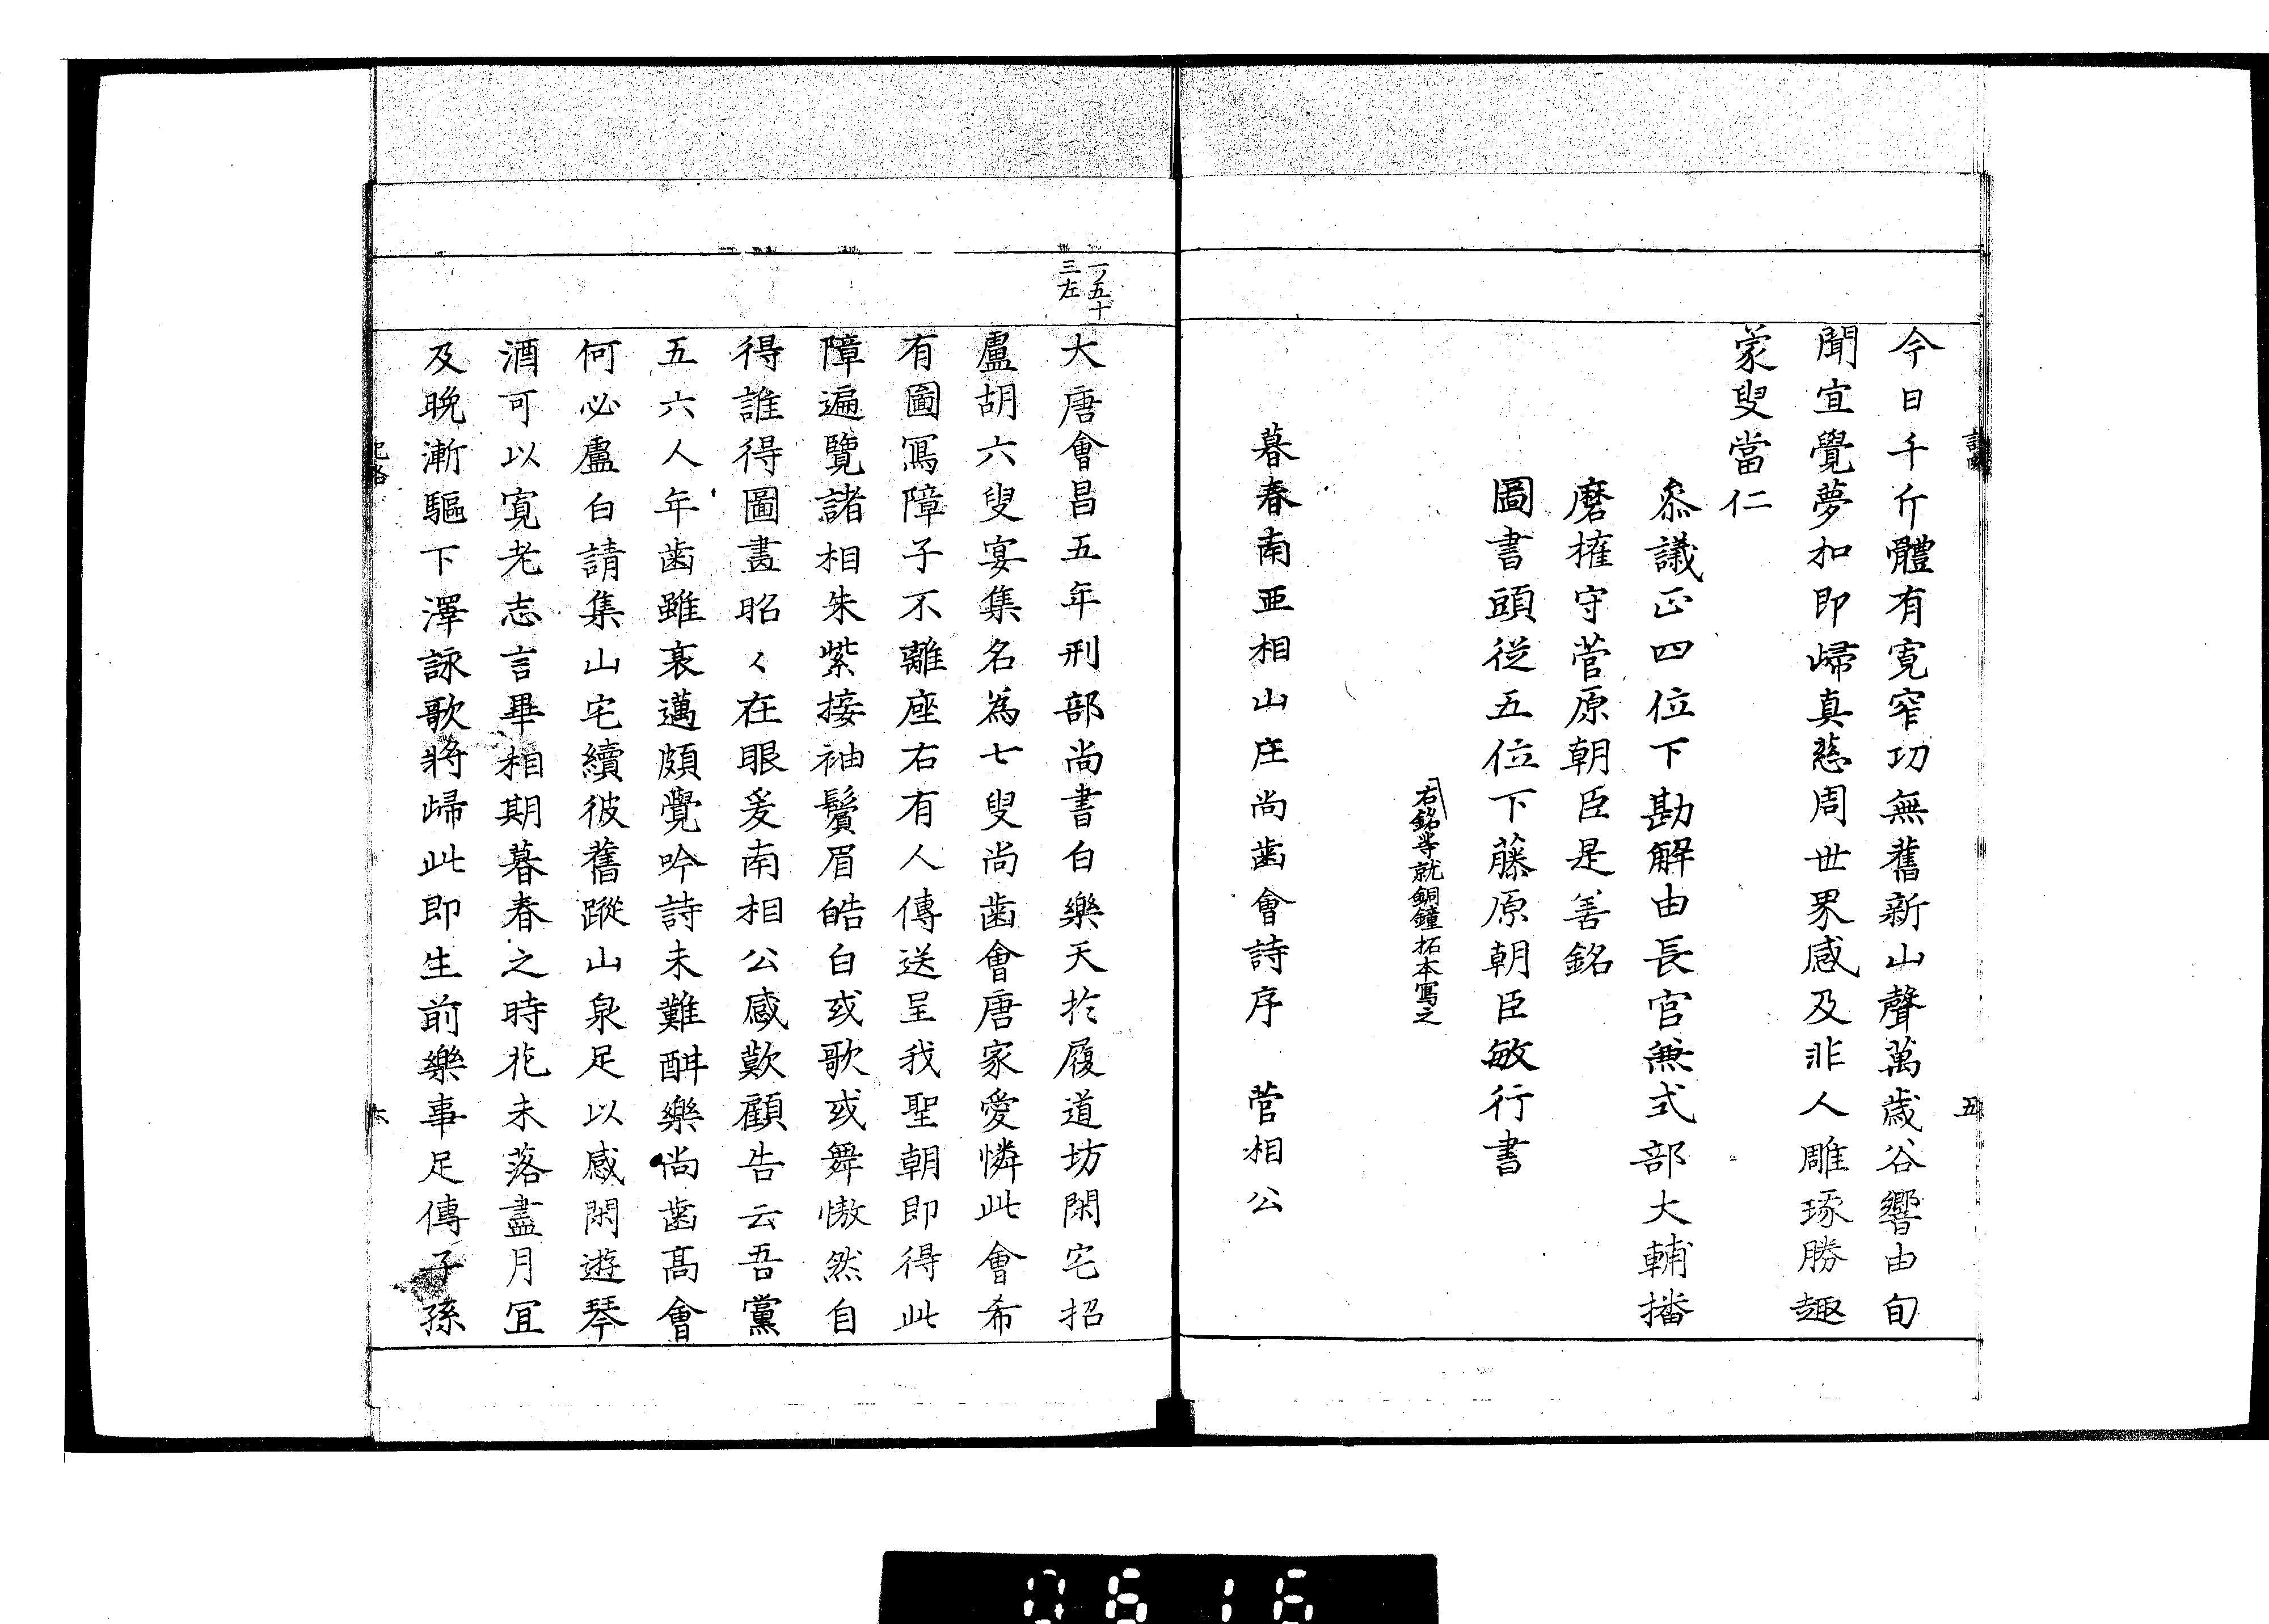 今日千斤體有寛窄功無舊新山聲萬歲谷響由旬
聞宜覺夢扣即歸真慈周世界感及非人雕琢勝趣
蒙叟當仁
叅議正四位下勘解由長官兼式部大輔播
磨權守菅原朝臣是善銘
圖書頭従五位下藤原朝臣敏行書
右銘等就銅鐘拓本寫之
暮春南亜相山庄尚齒會詩序　菅相公
五
一ノ五十
三左
大唐會昌五年刑部尚書白樂天於履道坊閑宅招
盧胡六叟宴集名為七叟尚齒會唐家愛憐此會希
有圖寫障子不離座右有人傳送呈我聖朝即得此
障遍覽諸相朱紫接袖鬢眉皓白或歌或舞慠然自
得誰得圖畫昭々在眼爰南相公感歎顧告云吾黨
五六人年齒雖衰邁頗覺吟詩未難酣樂尚齒高會
何必盧白請集山宅續彼舊蹤山泉足以感閑遊琴
酒可以寛老志言畢相期暮春之時花未落盡月冝
及晩漸驅下澤詠歌將歸此即生前樂事足傳子孫
六
0616